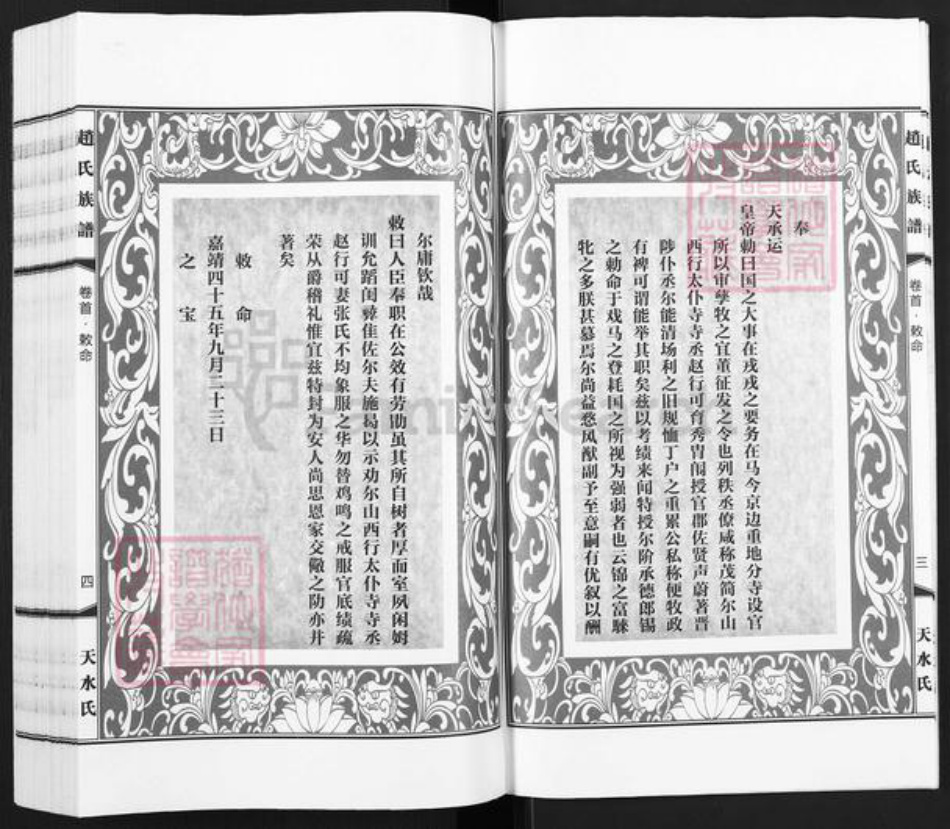 趙氏族譜
卷首·敕命
三
天水氏
奉
天承运
皇帝勅曰国之大事在戎戎之要务在马今京边重地分寺设官
所以审孳牧之宜董征发之令也列秩丞僚咸称茂简尔山
西行太仆寺寺丞赵行可育秀胄阀授官郡佐贤声蔚著晋
陟仆丞尔能清场利之旧规恤丁户之重累公私称便牧政
有裨可谓能举其职矣兹以考绩来闻特授尔阶承德郎锡
之勅命于戏马之登耗国之所视为强弱者也云锦之富騋
牝之多朕甚慕焉尔尚益悉风猷副予至意嗣有优叙以酬
尔庸钦哉
敕曰人臣奉职在公效有劳勋虽其所自树者厚而室夙闲姆
训允蹈闺彝隹佐尔夫施曷以示劝尔山西行太仆寺寺丞
赵行可妻张氏不均象服之华勿替鸡鸣之戒服官底绩疏
荣从爵稽礼惟宜兹特封为安人尚思恩家交儆之防亦并
著矣
敕命
嘉靖四十五年九月二十三日
之宝
趙氏族譜
卷首·敕命
四
天水氏